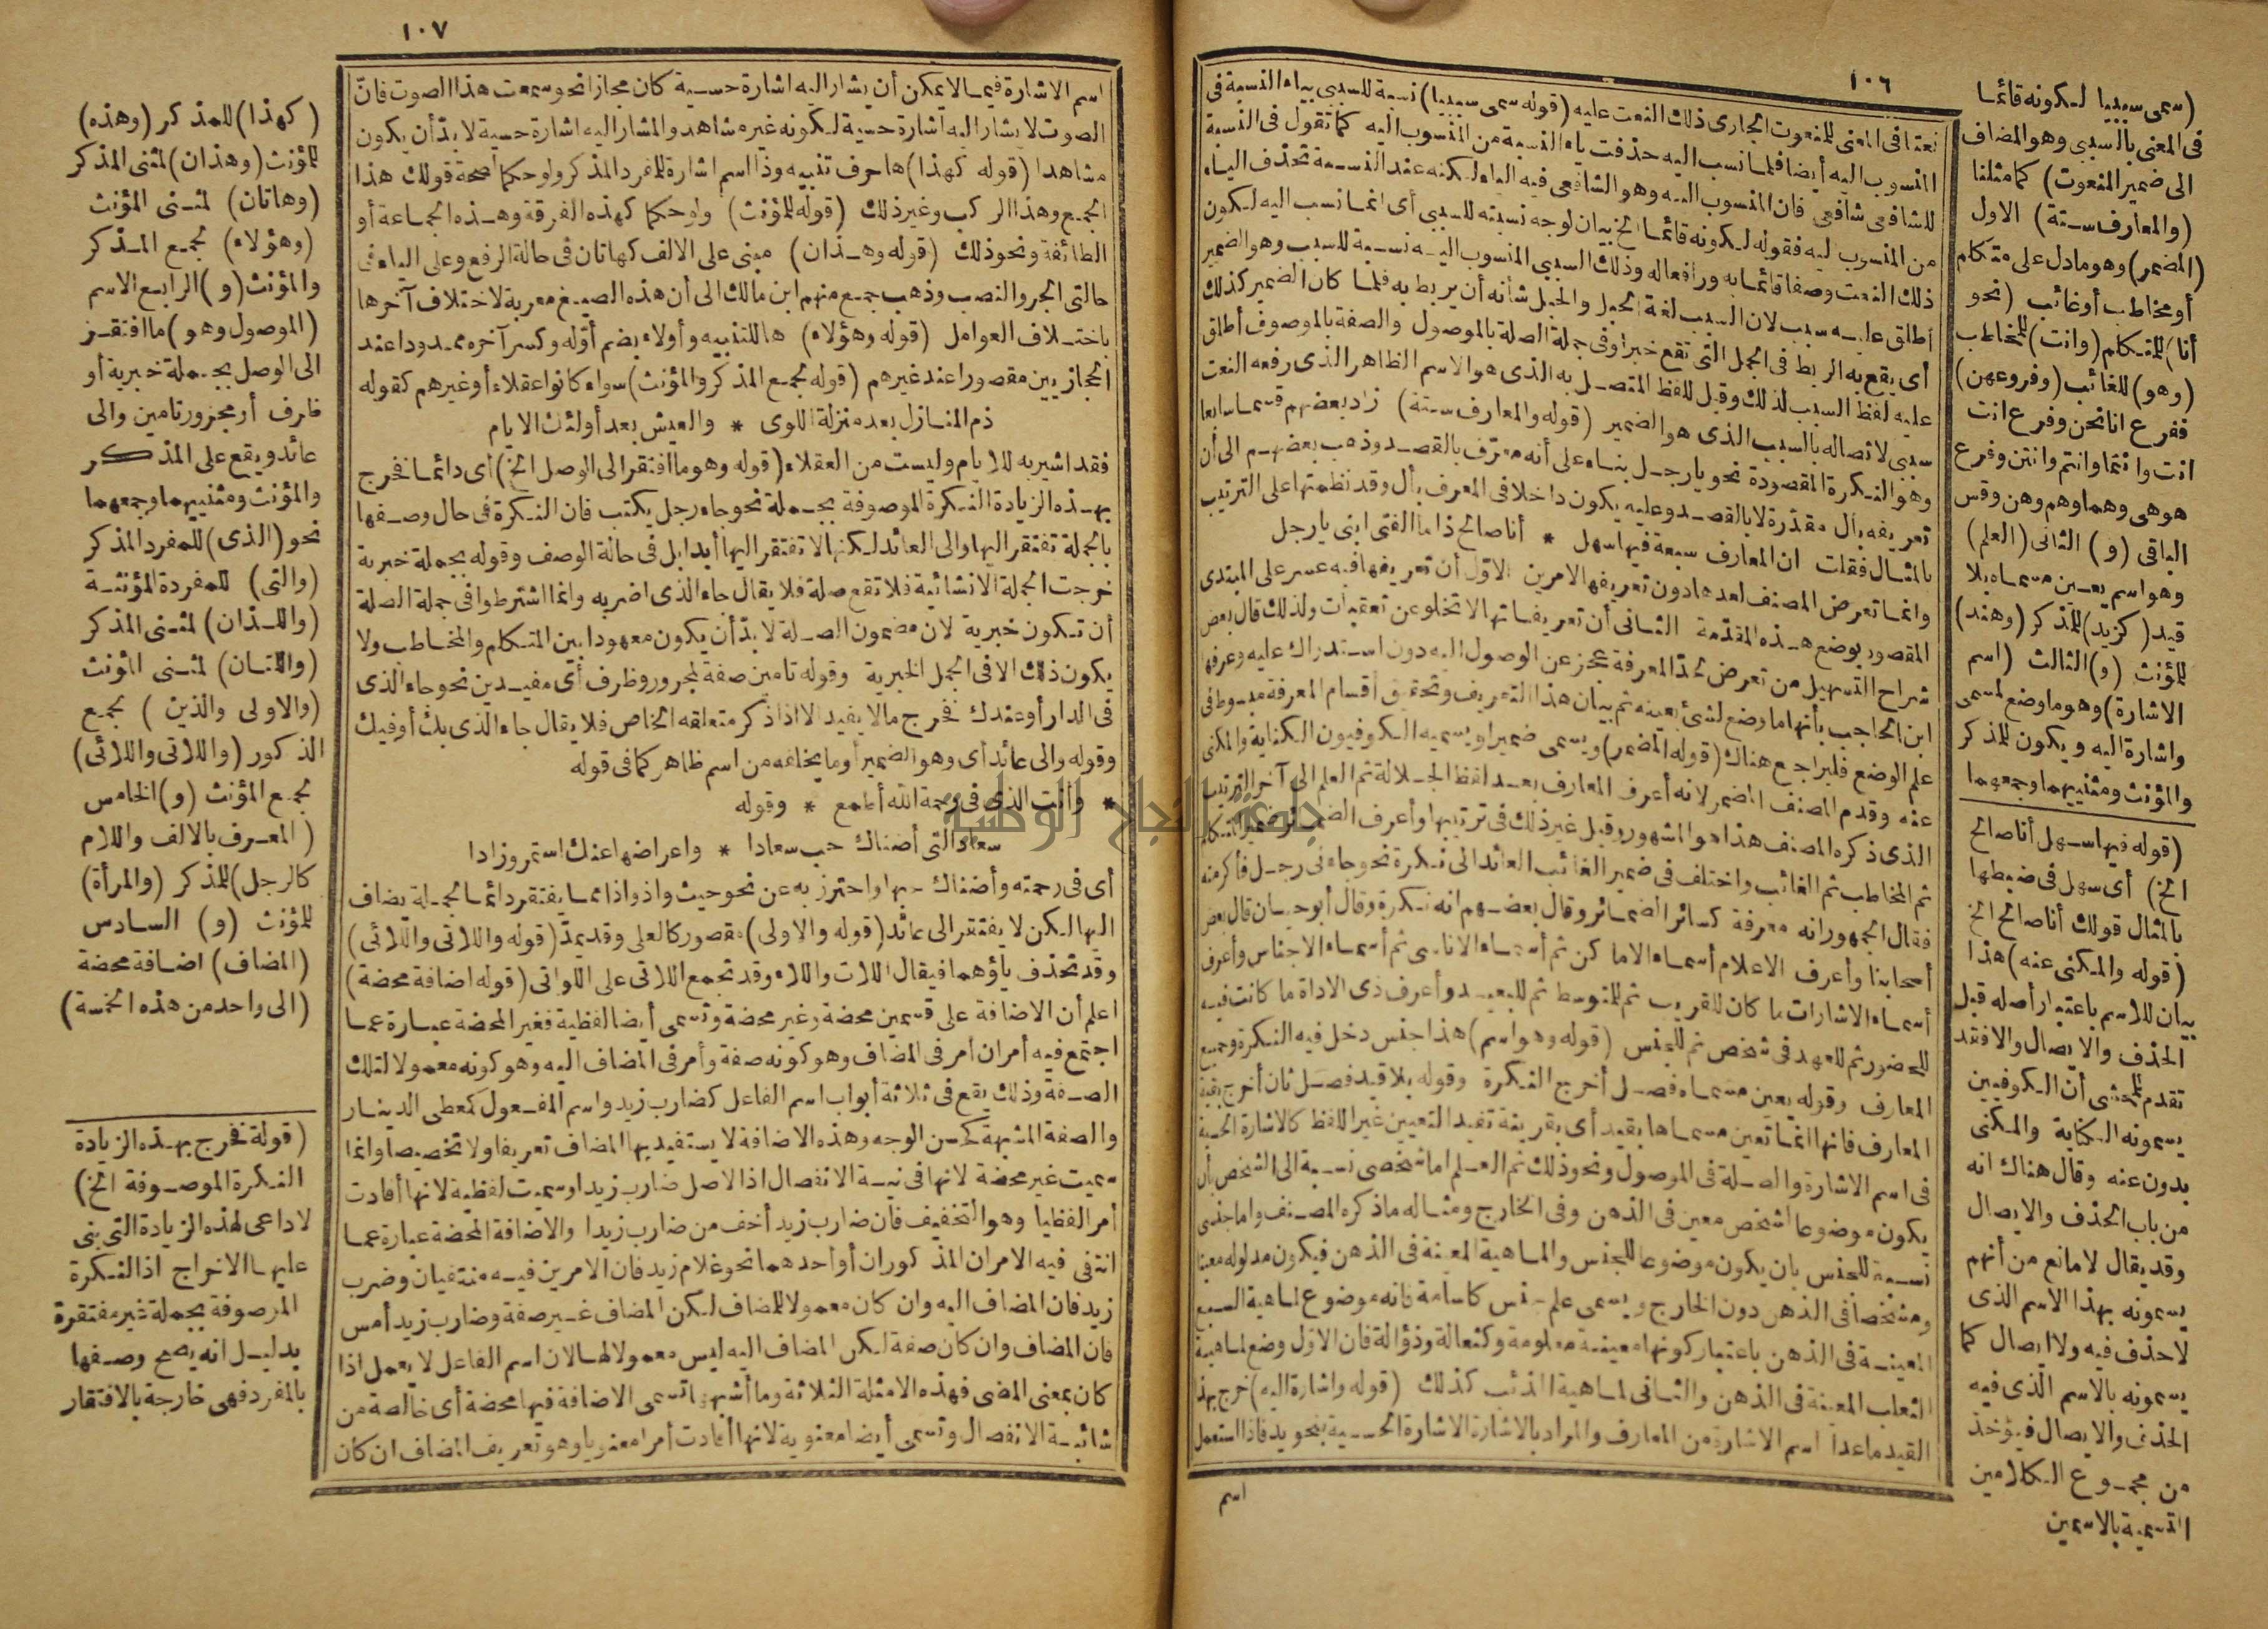 ١٠٦
(سمى سببيا لكونه قائما
فى المعنى بالسببى وهو المضاف
الى ضمير المنعوت) كما مثلنا
(والمعارف ستة) الاول
(المضمر) وهو ما دل على متكلم
أو مخاطب أو غائب (نحو
أنا) للمتكلم (وانت) للمخاطب
(وهو) للغائب (وفروعهن)
ففرع انا نحن وفرع انت
انت وانتما وانتم وانتن وفرع
هو هى وهما وهم وهن وقس
الباقى (و) الثانى (العلم)
وهو اسم يعين مسماه بلا
قيد (كزيد) للمذكر (وهند)
للمؤنث (و) الثالث (اسم
الاشارة) وهو ما وضع لمسمى
واشارة اليه ويكون للمذكر
والمؤنث ومثنييهما وجمعهما
(قوله فيها سهل أنا صالح
الخ) أى سهل فى ضبطها
بالمثال قولك أنا صالح الخ
(قوله والمكنى عنه) هذا
بيان للاسم باعتبار أصله قبل
الحذف والايصال والا فقد
تقدم للمحشى أن الكوفيين
يسمونه الكناية والمكنى
بدون عنه وقال هناك انه
من باب الحذف والايصال
وقد يقال لا مانع من أنهم
يسمونه بهذا الاسم الذى
لا حذف فيه ولا ايصال كما
يسمونه بالاسم الذى فيه
الحذف والايصال فيؤخذ
من مجموع الكلامين
التسمية بالاسمين
نعتا فى المعنى للمنعوت الجارى ذلك النعت عليه (قوله سمى سببيا) نسبة للسببى بياء النسبة فى
المنسوب اليه أيضا فلما نسب اليه حذفت ياء النسبة من المنسوب اليه كما تقول فى النسبة
للشافعى شافعى فان المنسوب اليه وهو الشافعى فيه الياء لكنه عند النسبة تحذف الياء
من المنسوب اليه فقوله لكونه قائما الخ بيان لوجه نسبته للسببى أى انما نسب اليه لكون
ذلك النعت وصفا قائما به ورافعاله وذلك السببى المنسوب اليه نسبة للسبب وهو الضمير
أطلق عليه سبب لان السبب لغة الحبل والحبل شأنه أن يربط به فلما كان الضمير كذلك
أى يقع به الربط فى الجمل التى تقع خبرا وفى جملة الصلة بالموصول والصفة بالموصوف أطلق
عليه لفظ السبب لذلك وقيل للفظ المتصل به الذى هو الاسم الظاهر الذى رفعه النعت
سببى لاتصاله بالسبب الذى هو الضمير (قوله والمعارف ستة) زاد بعضهم قسما سابعا
وهو النكرة المقصودة نحو يا رجل بناء على أنه معرف بالقصد وذهب بعضهم الى أن
تعريفه بأل مقدرة لا بالقصد وعليه يكون داخلا فى المعرف بأل وقد نظمتها على الترتيب
بالمثال فقلت ان المعارف سبعة فيها سهل * أنا صالح ذا ما الفتى ابنى يا رجل
وانما تعرض المصنف لعدها دون تعريفها لامرين الاول أن تعريفها فيه عسر على المبتدى
المقصود بوضع هذه المقدمة الثانى أن تعريفاتها لا تخلو عن تعقبات ولذلك قال بعض
شراح التسهيل من تعرض لحد المعرفة عجز عن الوصول اليه دون استدراك عليه وعرفها
ابن الحاجب بأنها ما وضع لشئ بعينه ثم بيان هذا التعريف وتحقيق أقسام المعرفة مبسوط فى
علم الوضع فليراجع هناك (قوله المضمر) ويسمى ضميرا ويسميه الكوفيون الكناية والمكنى
عنه وقدم المصنف المضمر لانه أعرف المعارف بعد لفظ الجلالة ثم العلم الى آخر الترتيب
الذى ذكره المصنف هذا هو المشهور وقيل غير ذلك فى ترتيبها وأعرف الضمائر ضمير المتكلم
ثم المخاطب ثم الغائب واختلف فى ضمير الغائب العائد الى نكرة نحو جاءنى رجل فأكرمته
فقال الجمهور انه معرفة كسائر الضمائر وقال بعضهم انه نكرة وقال أبو حيان قال بعض
أصحابنا وأعرف الاعلام أسماء الاماكن ثم أسماء الاناسى ثم أسماء الاجناس وأعرف
أسماء الاشارات ما كان للقريب ثم للمتوسط ثم للبعيد وأعرف ذى الاداة ما كانت فيه
للحضور ثم للعهد فى شخص ثم للجنس (قوله وهو اسم) هذا جنس دخل فيه النكرة وجميع
المعارف وقوله يعين مسماه فصل أخرج النكرة وقوله بلا قيد فصل ثان أخرج بقية
المعارف فانها انما تعين مسماها بقيد أى بقرينة تفيد التعيين غير اللفظ كالاشارة الحسية
فى اسم الاشارة والصلة فى الموصول ونحو ذلك ثم العلم اما شخصى نسبة الى الشخص بأن
يكون موضوعا لشخص معين فى الذهن وفى الخارج ومثاله ما ذكره المصنف واما جنسى
نسبة للجنس بان يكون موضوعا للجنس والماهية المعينة فى الذهن فيكون مدلوله معينا
ومشخصا فى الذهن دون الخارج ويسمى علم جنس كاسامة فانه موضوع لماهية السبع
المعينة فى الذهن باعتبار كونها معينة معلومة وكثعالة وذؤالة فان الاول وضع لماهية
الثعلب المعينة فى الذهن والثانى لماهية الذئب كذلك (قوله واشارة اليه) خرج بهذا
القيد ما عدا اسم الاشارة من المعارف والمراد بالاشارة الاشارة الحسية بنحو يد فاذا استعمل
اسم
١٠٧
اسم الاشارة فيما لا يمكن أن يشار اليه اشارة حسية كان مجازا نحو سمعت هذا الصوت فانّ
الصوت لا يشار اليه اشارة حسية لكونه غير مشاهد والمشار اليه اشارة حسية لا بدّ أن يكون
مشاهدا (قوله كهذا) ها حرف تنبيه وذا اسم اشارة للمفرد المذكر ولو حكما لصحة قولك هذا
الجمع وهذا الركب وغير ذلك (قوله للمؤنث) ولو حكما كهذه الفرقة وهذه الجماعة أو
الطائفة ونحو ذلك (قوله وهذان) مبنى على الالف كهاتان فى حالة الرفع وعلى الياء فى
حالتى الجر والنصب وذهب جمع منهم ابن مالك الى أن هذه الصيغ معربة لاختلاف آخرها
باختلاف العوامل (قوله وهؤلاء) ها للتنبيه وأولاء بضم أوّله وكسر آخره ممدودا عند
الحجازيين مقصورا عند غيرهم (قوله لجمع المذكر والمؤنث) سواء كانوا عقلاء أو غيرهم كقوله
ذم المنازل بعد منزلة اللوى * والعيش بعد أولئك الايام
فقد اشير به للايام وليست من العقلاء (قوله وهو ما افتقر الى الوصل الخ) أى دائما فخرج
بهذه الزيادة النكرة الموصوفة بجملة نحو جاء رجل يكتب فان النكرة فى حال وصفها
بالجملة تفتقر اليها والى العائد لكنها لا تفتقر اليها أبدا بل فى حالة الوصف وقوله بجملة خبرية
خرجت الجملة الانشائية فلا تقع صلة فلا يقال جاء الذى اضربه وانما اشترطوا فى جملة الصلة
أن تكون خبرية لان مضمون الصلة لا بدّ أن يكون معهودا بين المتكلم والمخاطب ولا
يكون ذلك الا فى الجمل الخبرية وقوله تامين صفة لمجرور وظرف أى مفيدين نحو جاء الذى
فى الدار أو عندك فخرج ما لا يفيد الا اذا ذكر متعلقه الخاص فلا يقال جاء الذى بك أو فيك
وقوله والى عائد أى وهو الضمير أو ما يخلفه من اسم ظاهر كما فى قوله
* وأنت الذى فى رحمة الله أطمع * وقوله
سعاد التى أضناك حب سعادا * واعراضها عنك استمر وزادا
أى فى رحمته وأضناك حبها واحترز به عن نحو حيث واذ واذا مما يفتقر دائما لجملة يضاف
اليها لكن لا يفتقر الى عائد (قوله والاولى) مقصور كالعلى وقد يمدّ (قوله واللاتى واللائى)
وقد تحذف ياؤهما فيقال اللات واللاء وقد تجمع اللاتى على اللواتى (قوله اضافة محضة)
اعلم أن الاضافة على قسمين محضة وغير محضة وتسمى أيضا لفظية فغير المحضة عبارة عما
اجتمع فيه أمران أمر فى المضاف وهو كونه صفة وأمر فى المضاف اليه وهو كونه معمولا لتلك
الصفة وذلك يقع فى ثلاثة أبواب اسم الفاعل كضارب زيد واسم المفعول كمعطى الدينار
والصفة المشبهة كحسن الوجه وهذه الاضافة لا يستفيد بها المضاف تعريفا ولا تخصيصا وانما
سميت غير محضة لانها فى نية الانفصال اذ الاصل ضارب زيدا وسميت لفظية لانها أفادت
أمرا لفظيا وهو التخفيف فان ضارب زيد أخف من ضارب زيدا والاضافة المحضة عبارة عما
انتفى فيه الامران المذكوران أو أحدهما نحو غلام زيد فان الامرين فيه منتفيان وضرب
زيد فان المضاف اليه وان كان معمولا للمضاف لكن المضاف غير صفة وضارب زيد أمس
فان المضاف وان كان صفة لكن المضاف اليه ليس معمولا لها لان اسم الفاعل لا يعمل اذا
كان بمعنى المضى فهذه الامثلة الثلاثة وما أشبهها تسمى الاضافة فيها محضة أى خالصة من
شائبة الانفصال وتسمى أيضا معنوية لانها أفادت أمرا معنويا وهو تعريف المضاف ان كان
(كهذا) للمذكر (وهذه)
للمؤنث (وهذان) لمثنى المذكر
(وهاتان) لمثنى المؤنث
(وهؤلاء) لجمع المذكر
والمؤنث (و) الرابع الاسم
(الموصول وهو) ما افتقر
الى الوصل بجملة خبرية أو
ظرف أو مجرور تامين والى
عائد ويقع على المذكر
والمؤنث ومثنييهما وجمعهما
نحو (الذى) للمفرد المذكر
(والتى) للمفردة المؤنثة
(واللذان) لمثنى المذكر
(واللتان) لمثنى المؤنث
(والاولى والذين) لجمع
الذكور (واللاتى واللائى)
لجمع المؤنث (و) الخامس
(المعرف بالالف واللام
كالرجل) للمذكر (والمرأة)
للمؤنث (و) السادس
(المضاف) اضافة محضة
(الى واحد من هذه الخمسة)
(قوله فخرج بهذه الزيادة
النكرة الموصوفة الخ)
لا داعى لهذه الزيادة التى بنى
عليها الاخراج اذ النكرة
الموصوفة بجملة غير مفتقرة
بدليل انه يصح وصفها
بالمفرد فهى خارجة بالافتقار
جامعة النجاح الوطنية